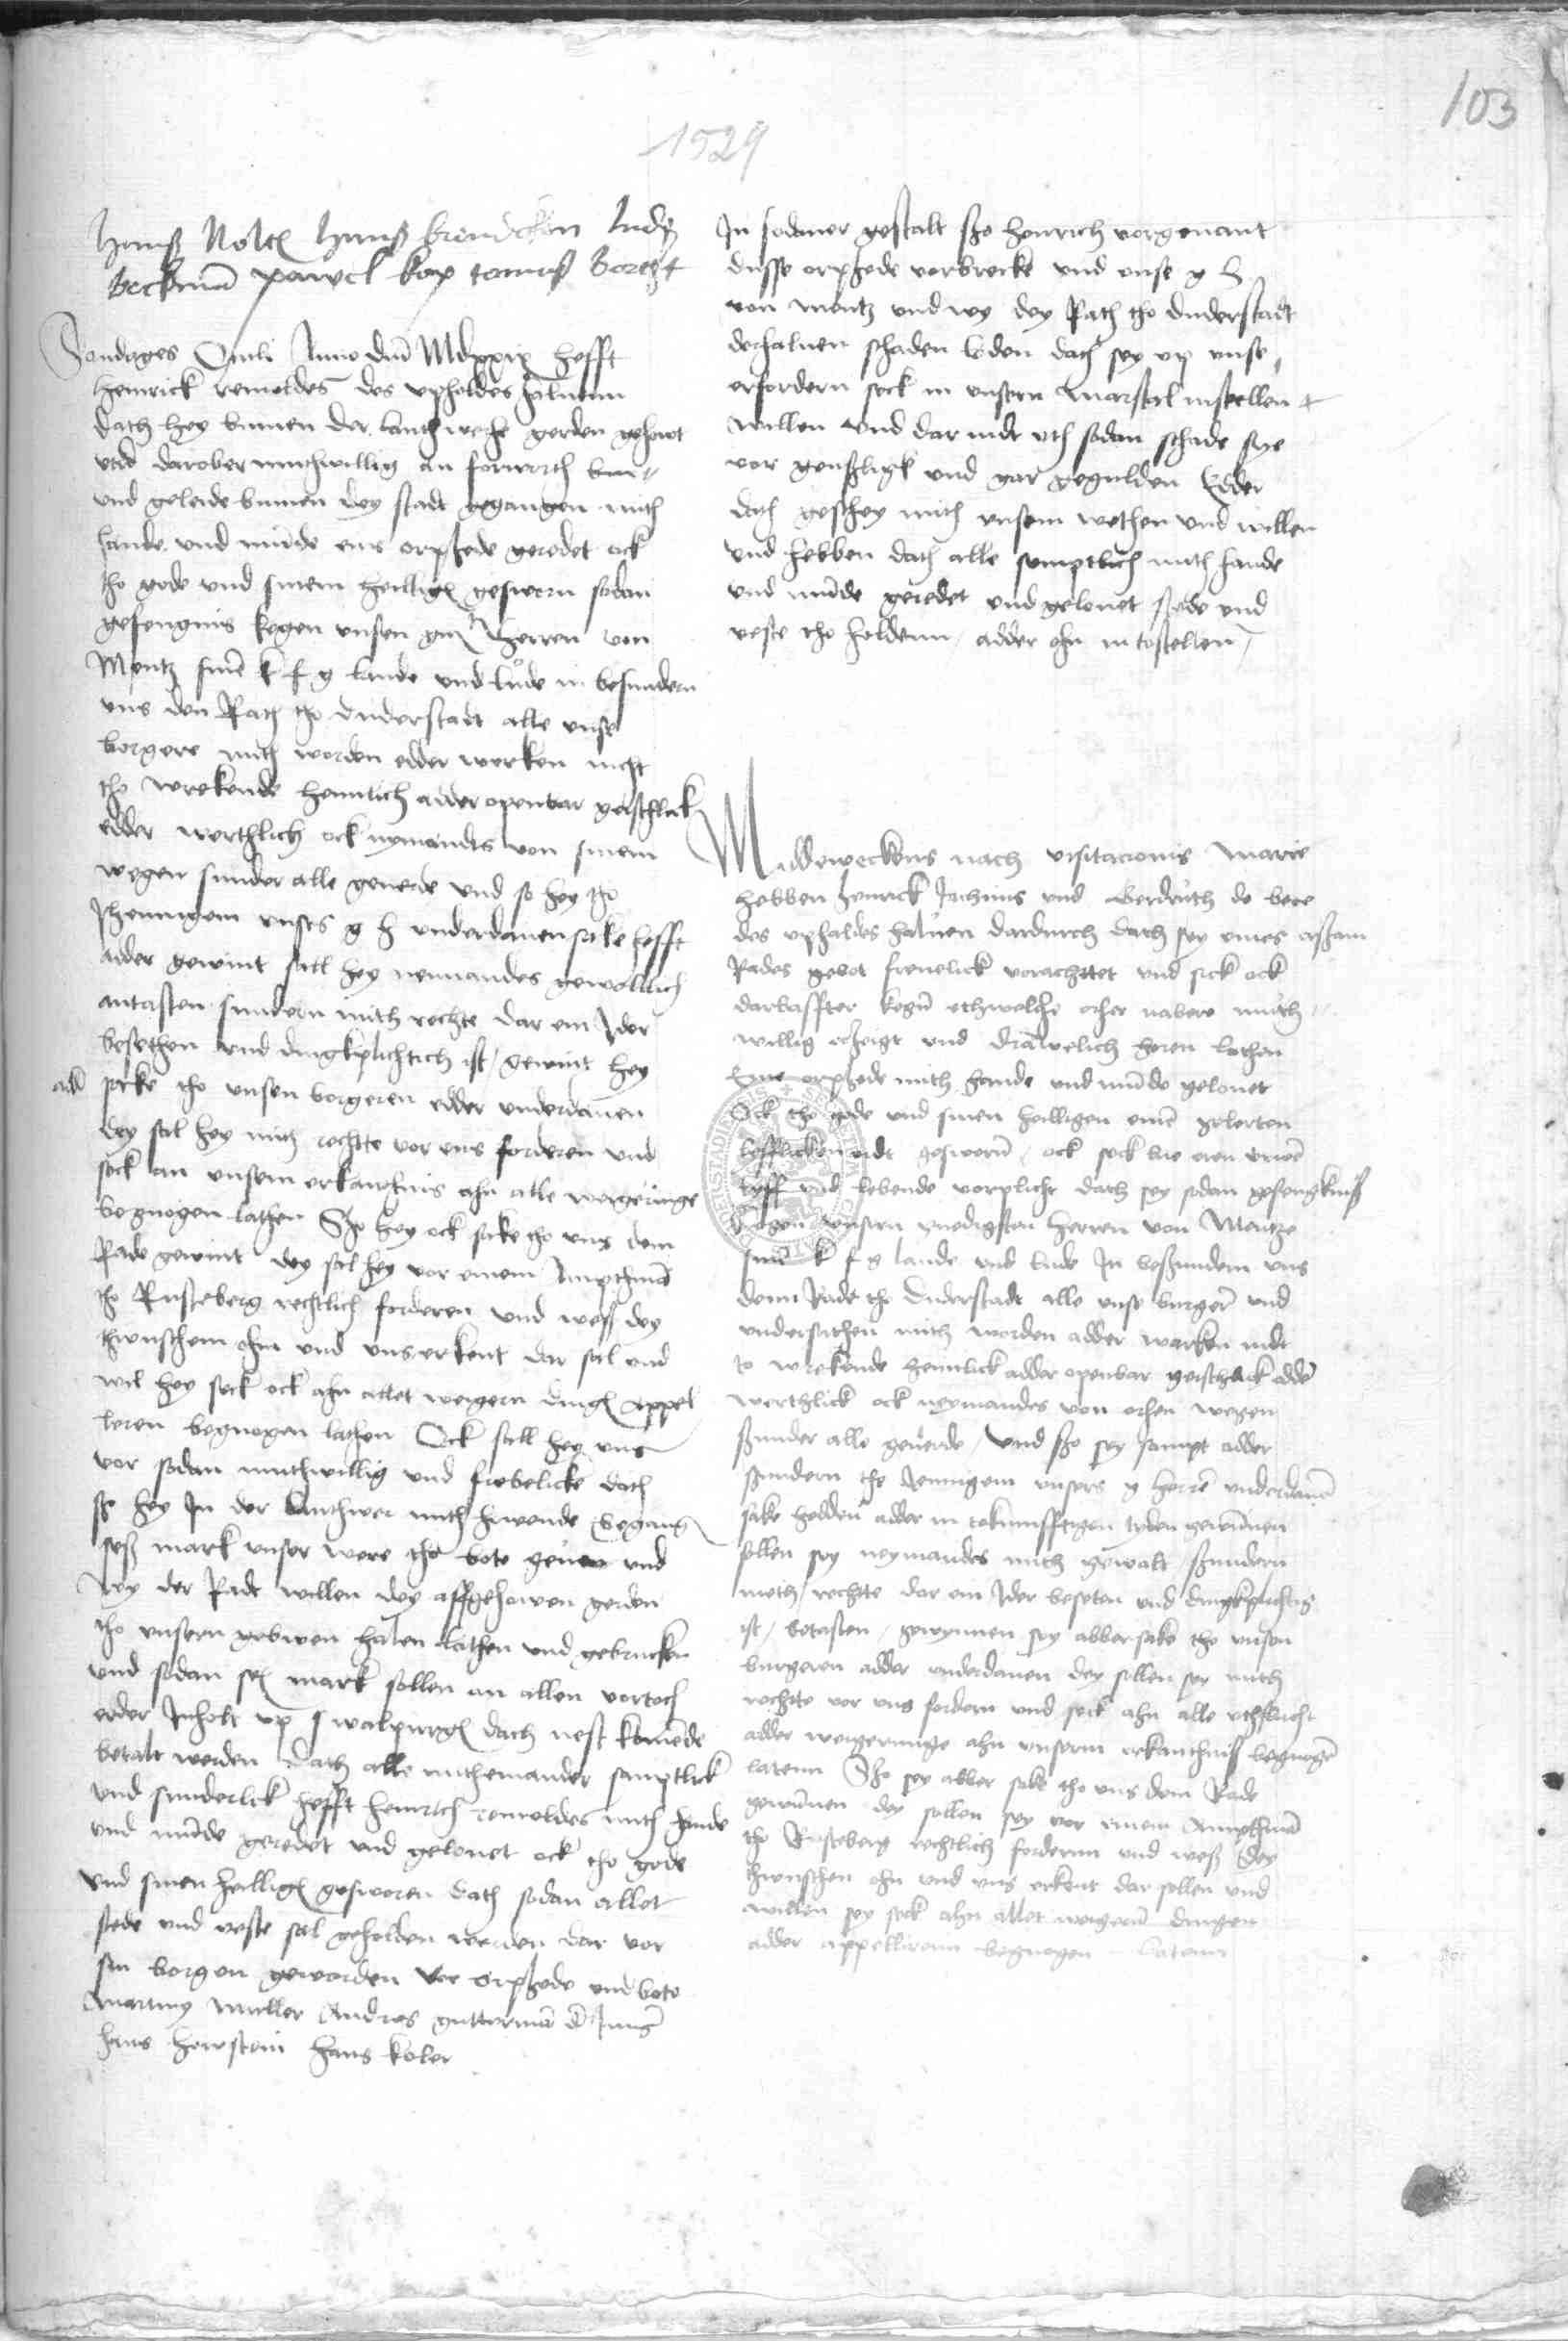 103
1529
Hanß Nolte Hanß brendeken Ludß
Beckman pawel kop tomaß Borcht
Sondages Oculi Anno dni Mdxxix hefft
Heinrick remoldes des upholdes haluenn
dath hey binnen der lanthwehr gerden gehowt
und darober muthwillig an forworth
und geleide binnen dey stadt gegangen mith
hande und munde eins orphede geredet ock
tho gode und sinem heilligen gesworn sodan
gefengnis kegen unsen gn Herren von
Mentz sine k f g lande und lude in besundern
uns den Rath tho duderstadt alle unse
borgere mith worden edder werken nicht
tho wrekende heimlich adder openbar geistlick
edder werthlich ock nymandts von sinem
wegen sunder alle geuerde und so hey tho
Jhennigem unses g h underdanen sake hefft
adder gewint sall hey nemandes gewoltlich
antasten sundern mith rechte dar ein Jder
besethen und dingkplichtich ist / gewint hey
add sake tho unsen borgeren edder underdanen
dey sal hey mith rechtte vor uns forderen und
seck an unsem erkantnis ahn alle wergeringe
begnogen lathen So hey ock sake tho uns dem
Rade gewint dey sal hey vor einem Ampthman
tho Rusteberg rechtlich forderen und weß dey
thwuschem ohm und uns erkent dar sal und
wil hey seck ock ahn allet weigern dinge appel
leren begnogen lathen Ock sall hey uns
vor sodan muthwillig und frebelicke dath
ße hey In der lanthwer mith howende begang
seß mark unser were tho bote geuen und
wy der Rade willen dey affgehowen gerden
tho unsern gebwen halen lathen und gebrucken
und sodan seß mark sollen an allen vortoch
edder Inholt up walpurgis dach nest komende
betalt werden dath alle mitheinander samptlick
und sunderlick hefft Heinrich remoldes mith hande
und munde geredet und gelouet ock tho gode
und sinen heilligen gesworen dath sodan allet
stede und veste sal geholden werden dar vor
sin borgen geworden vor orphede und bote
Martiny muller Andres gutterman
Hans Howstein Hans koler
In sodaner gestalt ßo Henrich vorgenant
dusse orphede vorbrecke und unse g h
von mentz und wy dey Rath tho duderstadt
derhaluen schaden leden dath sey up unse
erfordern seck in unsern marstal instellen
willen und dar nicht uth sodan schade sye
vor gentzligk und gar gegulden Edder
dath geschey mith unsem wethen und willen
und hebben dath alle semptlich mith hande
und munde geredet und gelouet stede und
veste tho holdenn / adder ohn intostellen /
Middeweckens nach visitacionis Marie
hebben Henrick Jachims und Gerdruth de bere
des upholdes haluen dardurch dath sey eines erßam
Rades gebot freuelick vorachttet und sick ock
darbaffter kegen ethwelche orher nabere muth
willig ertzeigt und drawelich horen lathen
Eine orphede mith hande und munde gelouet
Ock tho gode und sinen heilligen einen gelerten
lifflicken eidt gesworn / ock seck bie eren truwen
lyff und lebende vorplicht dath sey sodan gefengkniß
kegen unsern gnedigsten Herren von Mentze
sine k f g lande und lude In beßundern uns
denn Rade tho Duderstadt alle unse burger und
undersathen mith worden adder warken nicht
to wrekende heimlick adder openbar geistlick adder
werthlick ock nymandes von orhen wegen
ßunder alle geuerde / Und ßo sey sampt adder
ßundern tho Jennigem unsers g herre underdanen
sake hedden adder in tokumfftigen tyden gewunnen
sollen sey neymandes mith gewalt / ßundern
mith rechtte dar ein Jder beseten und dingkplichtig
ist / betasten / gewynnen sey abber sake tho unsen
burgeren adder underdanen dey sollen sey mith
rechtte vor uns fordern und seck ahn alle uthflucht
adder weigerunge ahn unserm erkanthniß begnogen
latenn So sey abber sake tho uns dem Rade
gewunnen dey sollen sey vor einem Ampthman
tho Rusteberg rechtlich fordernn und weß dey
thwuschen ohn und uns erkent dar sollen und
willen sey seck ahn allet weigern dingen
adder appellirenn begnogen latenn